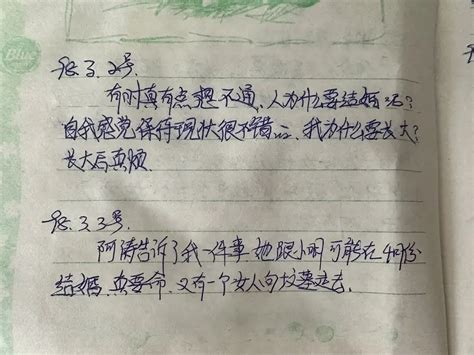 98.3.2号.
有时真有点想不通、人为什么要结婚呢?
自我感觉保持现状很不错……我为什么要长大?
长大后真烦.
98.3.3号.
阿涛告诉了我一件事 她跟小明可能在4月份
结婚.真要命.又有一个女人向坟墓走去.